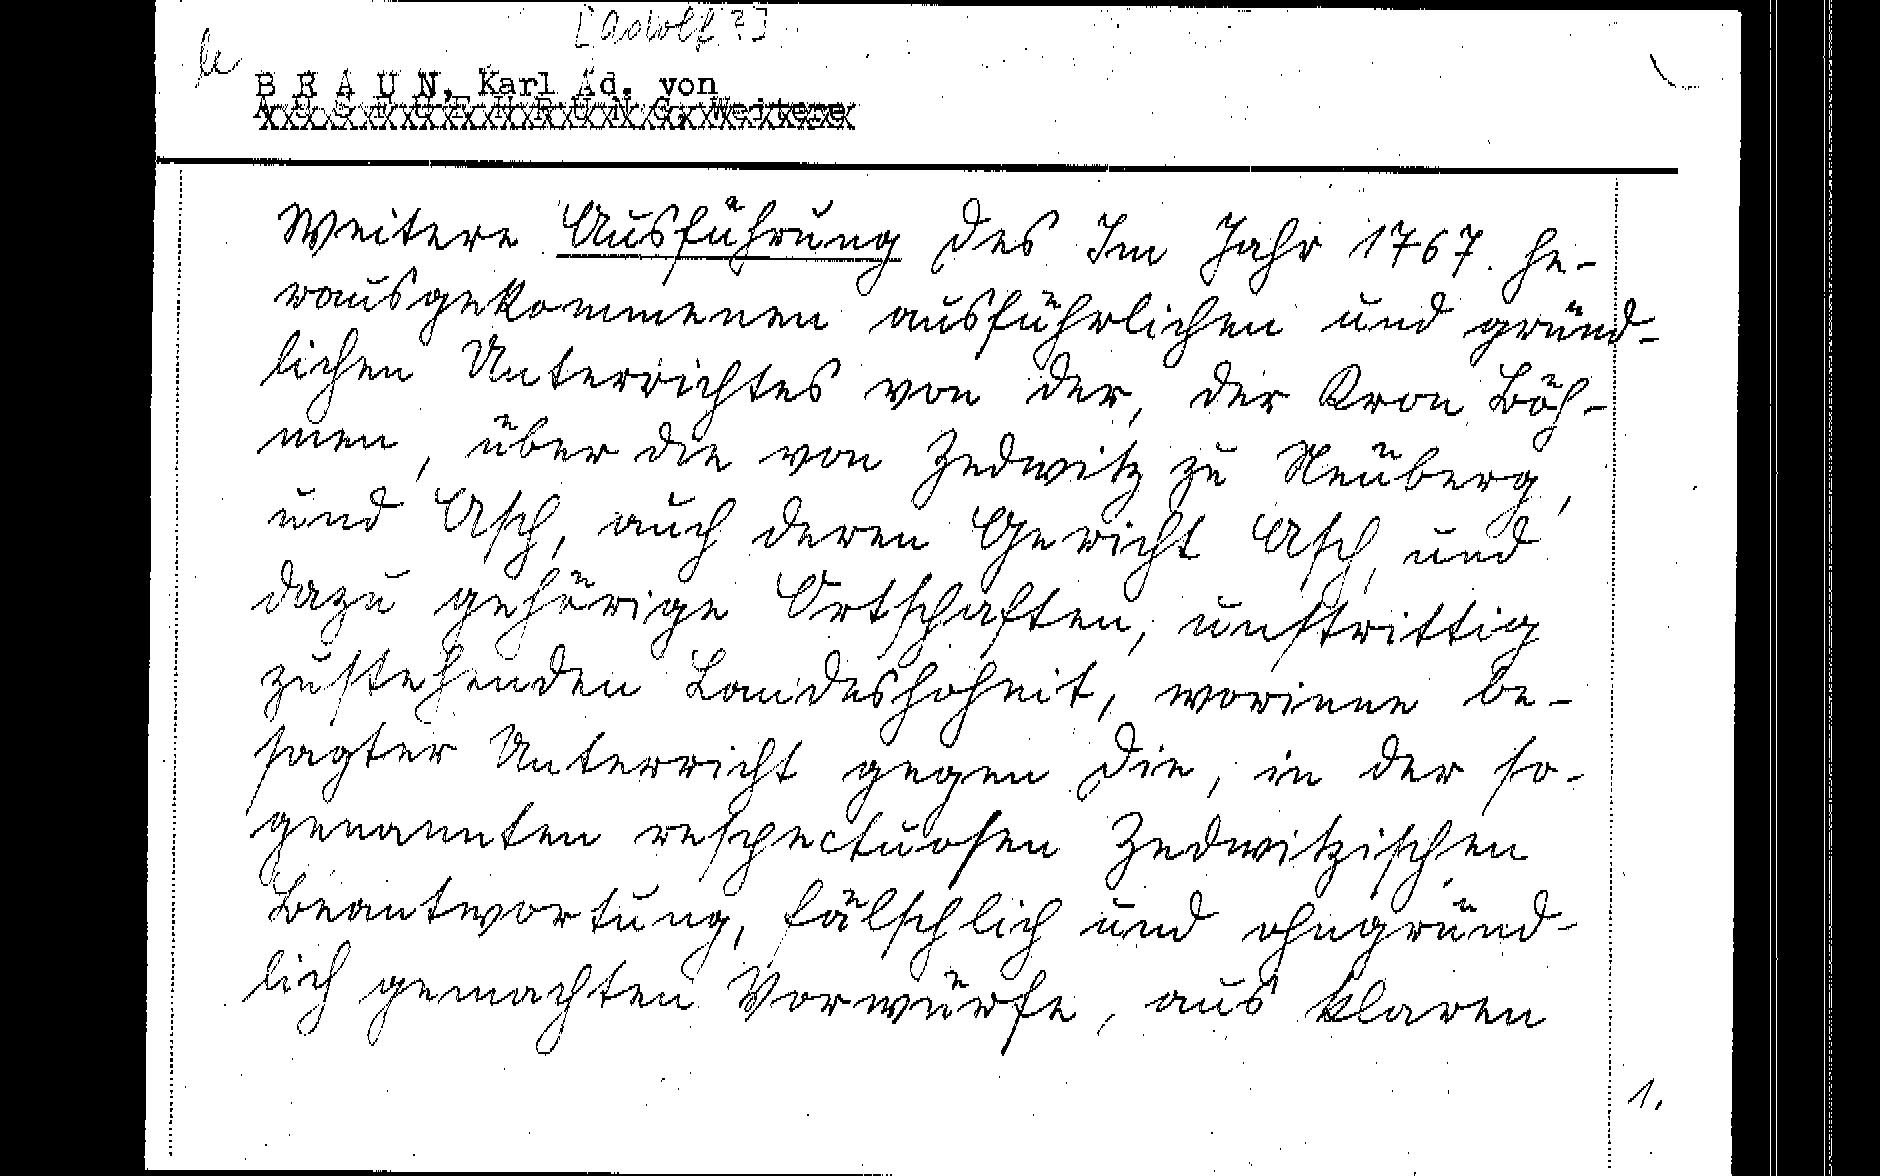 [Adolf?]
B R A U N, Karl Ad. von
A U S F Ü H R U N G, Weitere
Weitere Ausführung des Im Jahr 1767. he-
rausgekommenen ausführlichen und gründ-
lichen Unterrichtes von der, der Kron Böh-
men, über die von Zedwitz zu Neüberg,
und Asch, auch deren Gericht Asch, und
dazu gehörige Ortschaften, unstrittig
zustehenden Landeshoheit, worinne be-
sagter Unterricht gegen die, in der so-
genannten respectuosen Zedwitzischen
Beantwortung, fälschlich und ohngründ-
lich gemachten Vorwürfe, aus klaren
1.